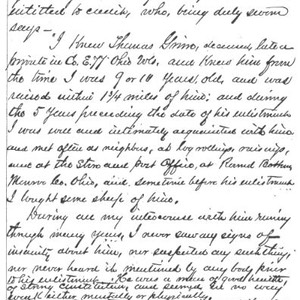 entitled to credit, who, being duly sworn
says—
I Knew Thomas Grimm, deceased, late a
private in Co. E, 77 Ohio Vols, and Knew him from
the time I was 9 or 10 years old, and was
raised within 1¼ miles of him; and during
the 5 years preceding the date of his enlistment
I was well and intimately acquainted with him
and met often as neighbors, at log rollings, raisings,
and at the store and Post Office, at Round Bottom
Monroe Co. Ohio, and, sometime before his enlistment
I bought some sheep of him.
During all my intercourse with him running
through many years, I never saw any signs of
insanity about him, nor suspected any such thing;
nor never heard it mentioned by any body prior
to his enlistment. He was a man of good health,
or strong constitution, and seemed in no way
weak either mentally or physically.